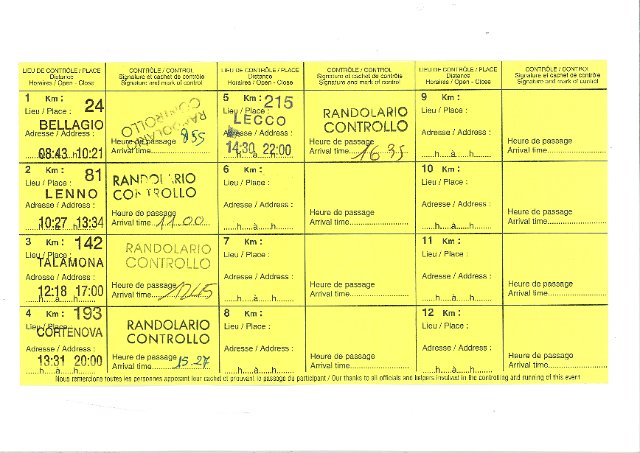 LIEU DE CONTRÔLE / PLACE
Distance
Horaires / Open - Close
CONTRÔLE / CONTROL
Signature et cachet de contrôle
Signature and mark of control
LIEU DE CONTRÔLE / PLACE
Distance
Horaires / Open - Close
CONTRÔLE / CONTROL
Signature et cachet de contrôle
Signature and mark of control
LIEU DE CONTRÔLE / PLACE
Distance
Horaires / Open - Close
CONTRÔLE / CONTROL
Signature et cachet de contrôle
Signature and mark of control
1 Km : 24
Lieu / Place :
BELLAGIO
Adresse / Address :
08:43 10:21
...h....à....h....
RANDOLARIO
CONTROLLO
Heure de passage
Arrival time 8 55
5 Km : 215
Lieu / Place :
LECCO
Adresse / Address :
14:30 22:00
RANDOLARIO
CONTROLLO
Heure de passage
Arrival time 16 35
9 Km :
Lieu / Place :
Adresse / Address :
...h....à....h....
Heure de passage
Arrival time
2 Km : 81
Lieu / Place :
LENNO
Adresse / Address :
10:27 13:34
RANDOLARIO
CONTROLLO
Heure de passage
Arrival time 11.00
6 Km :
Lieu / Place :
Adresse / Address :
...h....à....h....
Heure de passage
Arrival time
10 Km :
Lieu / Place :
Adresse / Address :
...h....à....h....
Heure de passage
Arrival time
3 Km : 142
Lieu / Place :
TALAMONA
Adresse / Address :
12:18 17:00
...h....à....h....
RANDOLARIO
CONTROLLO
Heure de passage
Arrival time
7 Km :
Lieu / Place :
Adresse / Address :
...h....à....h....
Heure de passage
Arrival time
11 Km :
Lieu / Place :
Adresse / Address :
...h....à....h....
Heure de passage
Arrival time
4 Km : 193
Lieu / Place :
CORTENOVA
Adresse / Address :
13:31 20:00
...h....à....h....
RANDOLARIO
CONTROLLO
Heure de passage
Arrival time 15.27
8 Km :
Lieu / Place :
Adresse / Address :
...h....à....h....
Heure de passage
Arrival time
12 Km :
Lieu / Place :
Adresse / Address :
...h....à....h....
Heure de passage
Arrival time
Nous remercions toutes les personnes apposant leur cachet et prouvant le passage du participant / Our thanks to all officials and helpers involved in the controling and running of this event